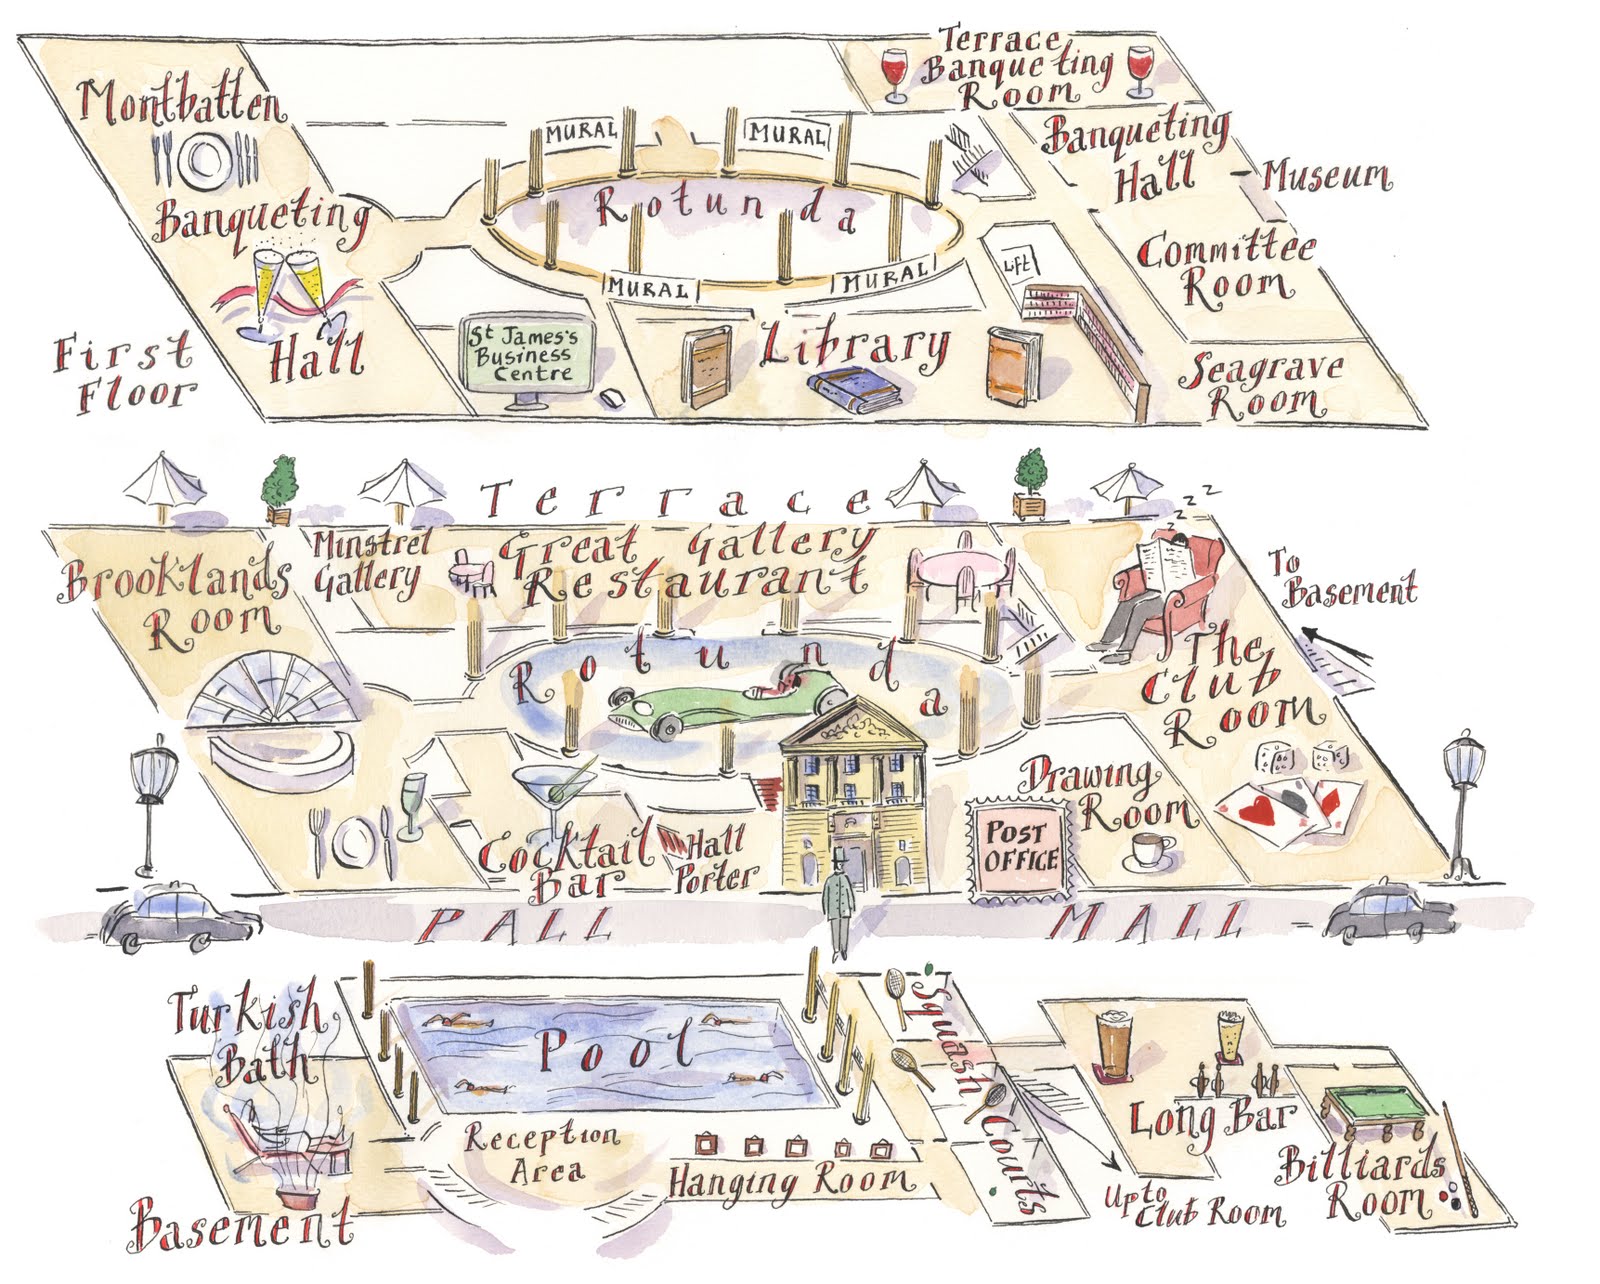 Terrace
Banqueting
Room
Montbatten
Banqueting
Hall
MURAL
MURAL
Rotunda
MURAL
MURAL
Banqueting
Hall
Museum
Lift
Committee
Room
St James's
Business
Centre
Library
Seagrave
Room
First
Floor
Terrace
zzz
Brooklands
Room
Minstrel
Gallery
Great Gallery
Restaurant
To
Basement
Rotunda
The
Club
Room
Drawing
Room
POST
OFFICE
Cocktail
Bar
Hall
Porter
PALL MALL
Turkish
Bath
Pool
Squash Courts
Reception
Area
Hanging Room
Long Bar
Billiards
Room
Up to
Club Room
Basement